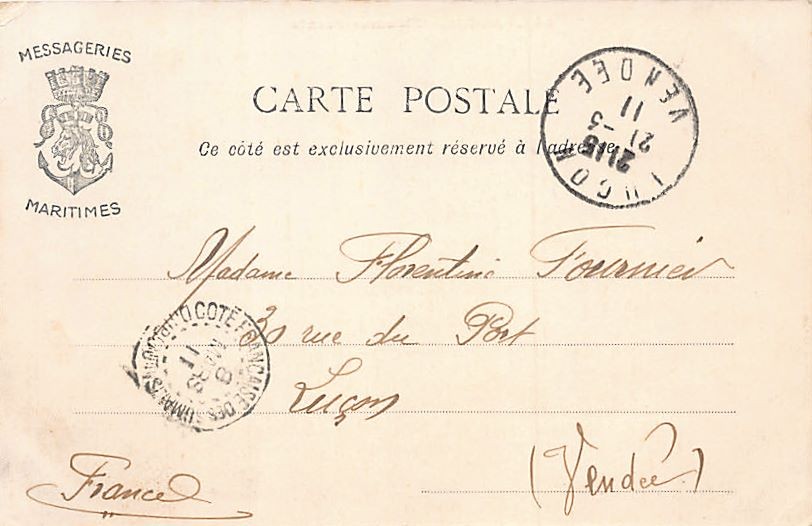 MESSAGERIES
MARITIMES
CARTE POSTALE
Ce côté est exclusivement réservé à l'adresse
LUÇON
VENDÉE
2115
21-3
11
Madame Florentine Fournier
30 rue du Port
Luçon
(Vendée)
France
CÔTE FRANÇAISE DES SOMALIS
11